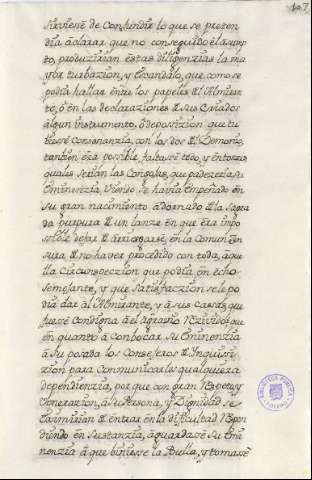 107
sirviese de Confundir lo que se preten
dia aclarar, que no conseguido el asump
to, producirian estas diligenzias la ma
yor turbazion, y escandalo, que como se
podia hallar entre los papeles del Almiran
te, ó en las declaraciones de sus Criados
algun instrumento, ó deposizion que tu
biesse consonanzia, con los dos del Demonio,
tambien era posible faltase todo, y entonzes
quales serian las congojas, que padezeria su
Eminenzia, viendo se havia Empeñado en
su gran nacimiento adornado de la sagra
da purpura de un lanze en que era impo
sible dejar de arriesgarse, en la Comun Zen
sura de no haver procedido con toda, aque
lla circunspeccion que podia en echo
semejante, y que satisfazion se le po
dia dar al Almirante, y a sus casas, que
fuesse condigna a el agravio Rezivido; que
en quanto a conbocar su Eminenzia
a su posada los Consejeros de Inquisi
zion para comunicarles qualquiera
dependienzia, por que con gran Respeto, y
Venerazion, a su Persona, y Dignidad se
eximirian de entrar en la dificultad Respon
diendo en sustanzia, aguardase su Emi
nenzia a que biniesse la Bulla, y tomasse
BIBLIOTECA PUBLICA
TOLEDO